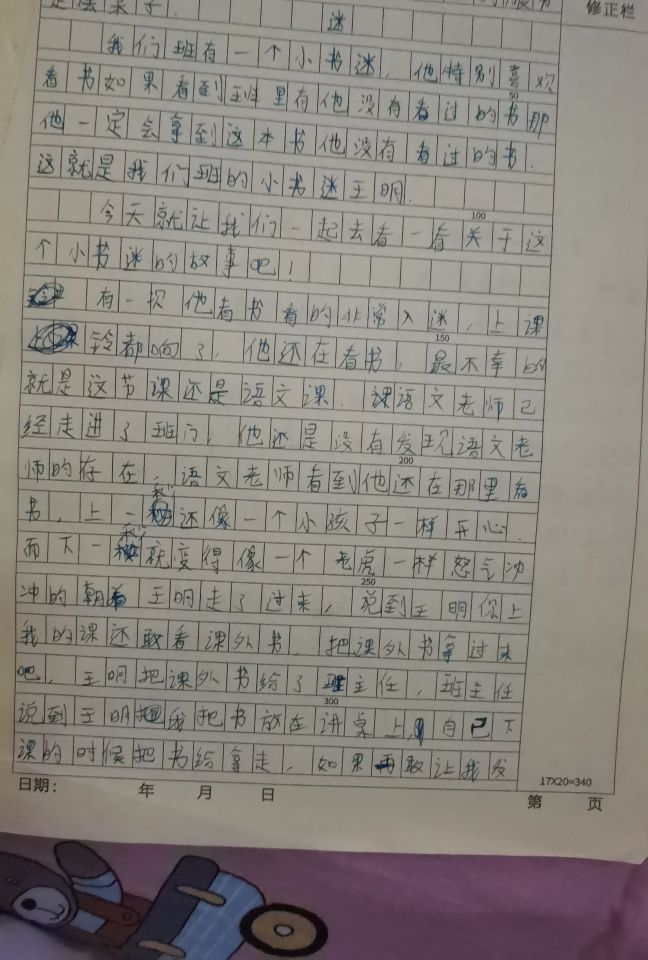 修正栏
迷
我们班有一个小书迷，他特别喜欢
50
看书如果看到班里有他没有看过的书那
他一定会拿到这本书他没有看过的书.
这就是我们班的小书迷王明.
100
今天就让我们一起去看一看关于这
个小书迷的故事吧！
有一次他看书看的非常入迷，上课
150
铃都响了，他还在看书，最不幸的
就是这节课还是语文课.课语文老师已
经走进了班门，他还是没有发现语文老
200
师的存在，语文老师看到他还在那里看
书，上一秒还像一个小孩子一样开心.
而下一秒就变得像一个老虎一样怒气冲
250
冲的朝着王明走了过来，说到王明你上
我的课还敢看课外书.把课外书拿过来
吧，王明把课外书给了班主任，班主任
300
说到王明把书放在讲桌上，自己下
课的时候把书给拿走，如果再敢让我发
17X20=340
日期： 年 月 日 第 页